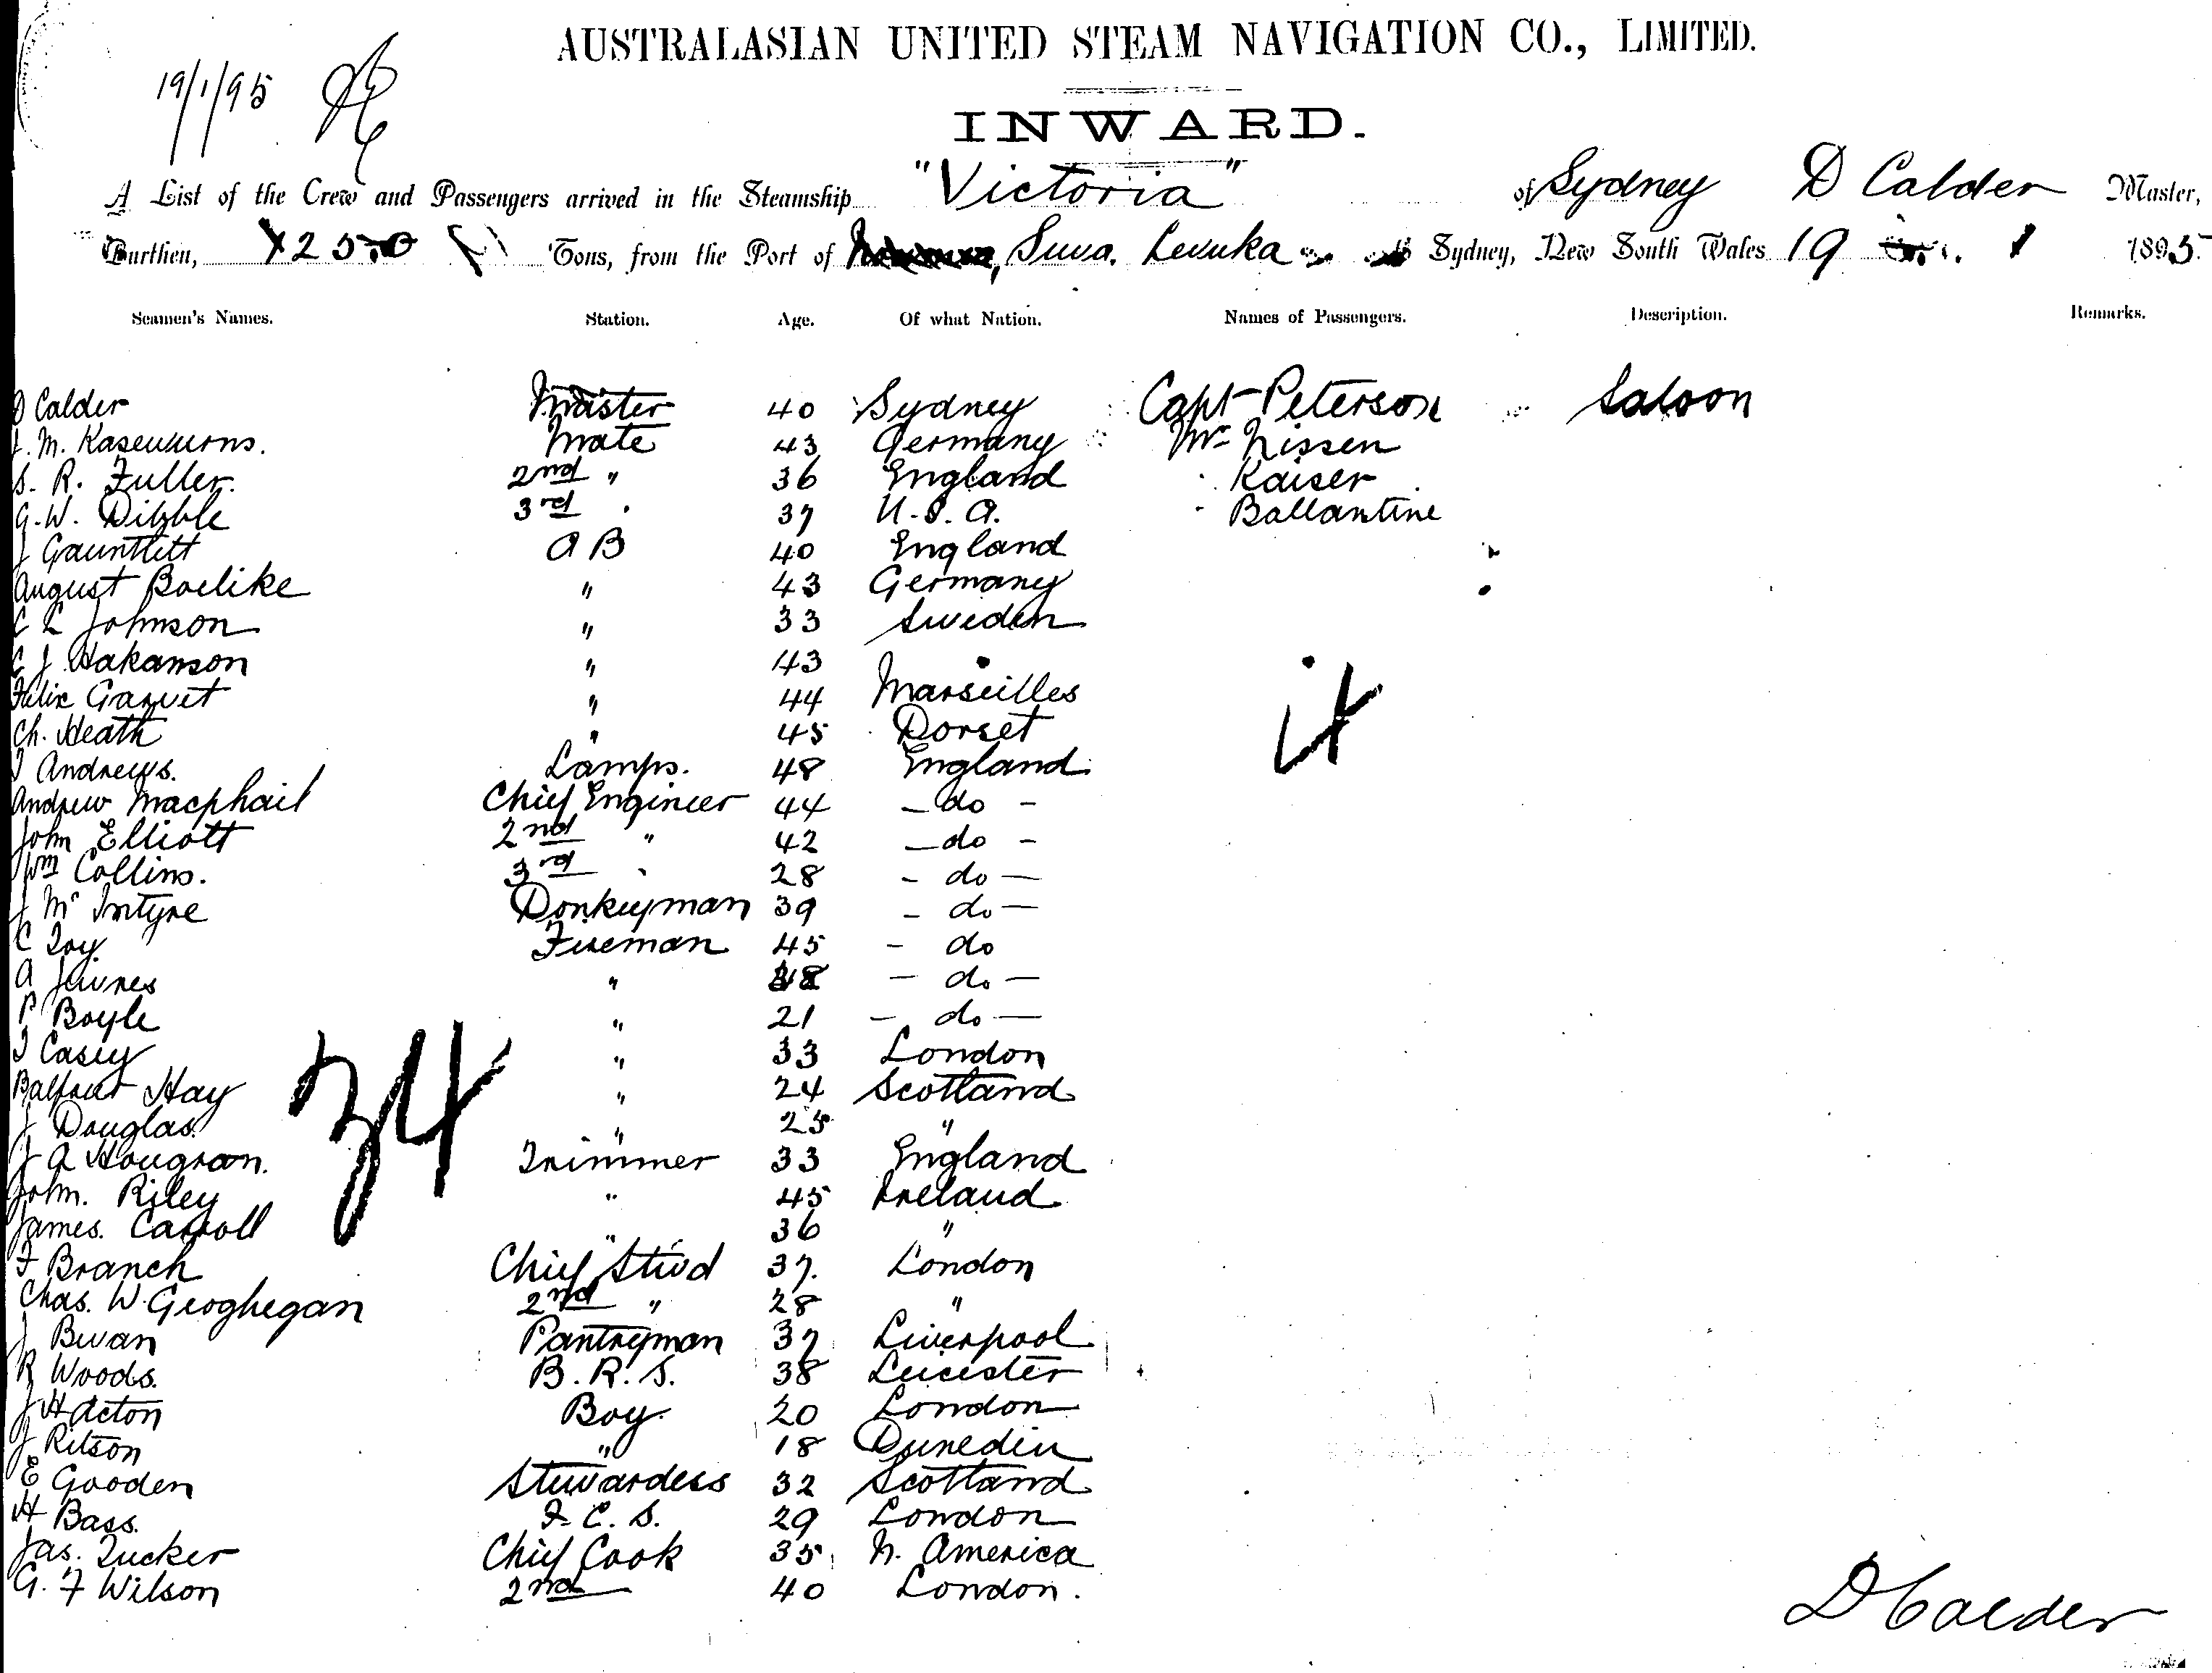 AUSTRALASIAN UNITED STEAM NAVIGATION CO., LIMITED.
19/1/95
INWARD.
A List of the Crew and Passengers arrived in the Steamship "Victoria" of Sydney D Calder Master,
Burthen, 1250 Tons, from the Port of Suva. Levuka Sydney, New South Wales 19 1 1895
Seamen's Names. Station. Age. Of what Nation. Names of Passengers. Description. Remarks.
D Calder Master 40 Sydney Capt Peterson Saloon
M. Mate 43 Germany Mr Nissen
S. R. Fuller. 2nd " 36 England Kaiser
G. W. 3rd 37 U.S.A. Ballantine
J Gauntlett A B 40 England
August Boelike " 43 Germany
C L Johnson " 33 Sweden
C J Hakanson " 43 "
Felix " 44 Marseilles
Ch. Heath " 45 Dorset
Andrews. Lamps. 48 England
Andrew Macphail Chief Engineer 44 - do -
John Elliott 2nd " 42 - do -
Wm Collins. 3rd 28 - do -
J McIntyre Donkeyman 39 - do -
C Fireman 45 - do
A " - do -
P Boyle " 21 - do -
Casey " 33 London
Balfour Hay " 24 Scotland
J Douglas. " 25 "
J A Trimmer 33 England
John. Riley " 45 Ireland
James. Carroll " 36 "
F Branch Chief Stwd 37. London
Chas. W. Geoghegan 2nd " 28 "
J Pantryman 37 Liverpool
R Woods. B. R. S. 38 Leicester
J H Acton Boy. 20 London
J Ritson " 18 Dunedin
E Gooden Stewardess 32 Scotland
H Bass. F. C. S. 29 London
Jas. Tucker Chief Cook 35 N. America
G. F Wilson 2nd 40 London.
34
D Calder